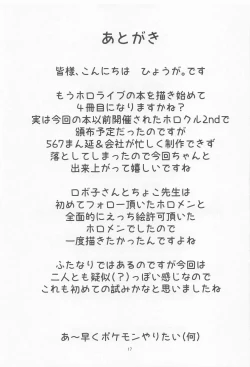 あとがき
皆様、こんにちは　ひょうが。です
もうホロライブの本を描き始めて
4冊目になりますかね？
実は今回の本以前開催されたホロクル2ndで
頒布予定だったのですが
567まん延&会社が忙しく制作できず
落としてしまったので今回ちゃんと
出来上がって嬉しいですね
ロボ子さんとちょこ先生は
初めてフォロー頂いたホロメンと
全面的にえっち絵許可頂いた
ホロメンでしたので
一度描きたかったんですよね
ふたなりではあるのですが今回は
二人とも疑似(？)っぽい感じなので
これも初めての試みかなと思いましたね
あ～早くポケモンやりたい(何)
17